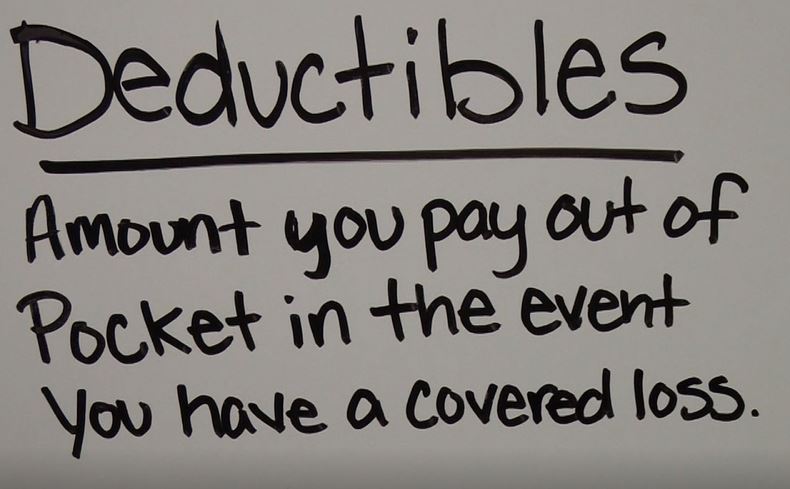 Deductibles
Amount you pay out of
Pocket in the event
You have a covered loss.